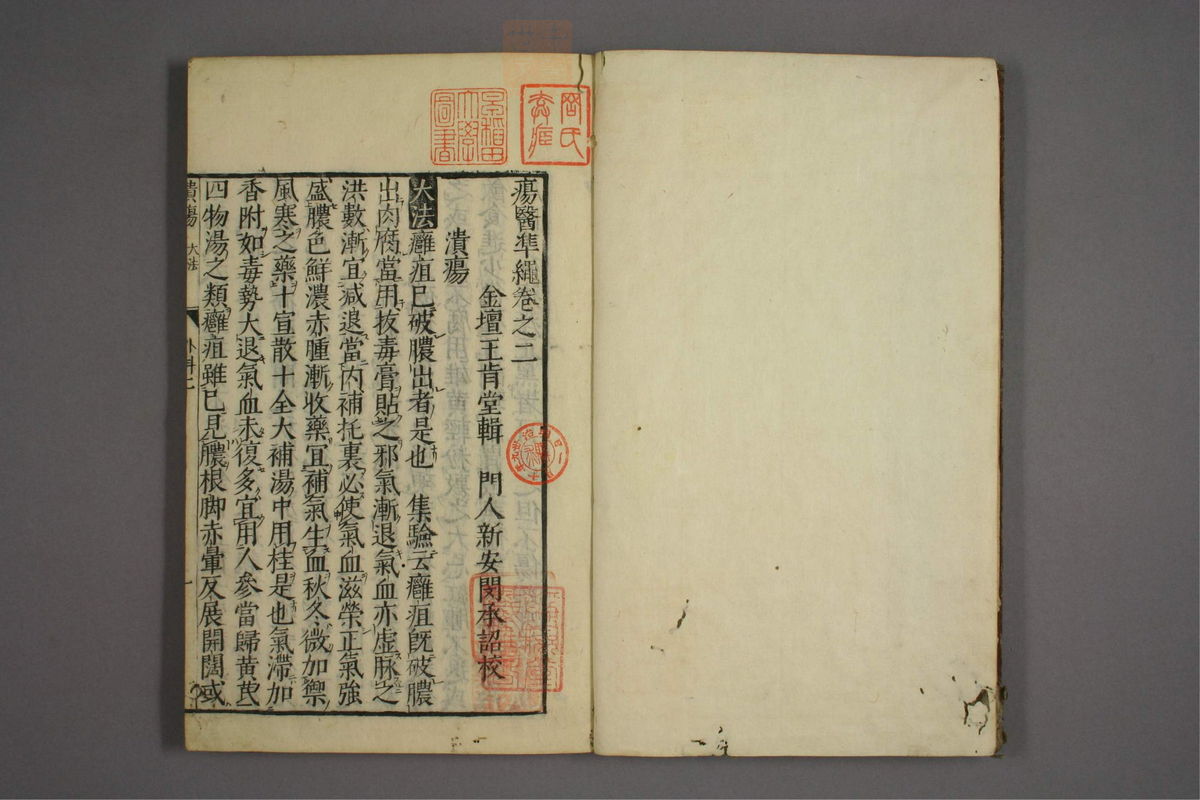 瘍醫準繩卷之二
金壇王肯堂輯 門人新安閔承詔校
潰瘍
大法癰疽已破膿出者是也 集驗云癰疽既破膿
出肉腐當用拔毒膏貼之邪氣漸退氣血亦虛脉之
洪數漸宜減退當內補托裏必使氣血滋榮正氣強
盛膿色鮮濃赤腫漸收藥宜補氣生血秋冬微加禦
風寒之藥十宣散十全大補湯中用桂是也氣滯加
香附如毒勢大退氣血未復多宜用人參當歸黃芪
四物湯之類癰疽雖已見膿根脚赤暈反展開闊或
潰瘍 大法
外科二
早稻田大學圖書